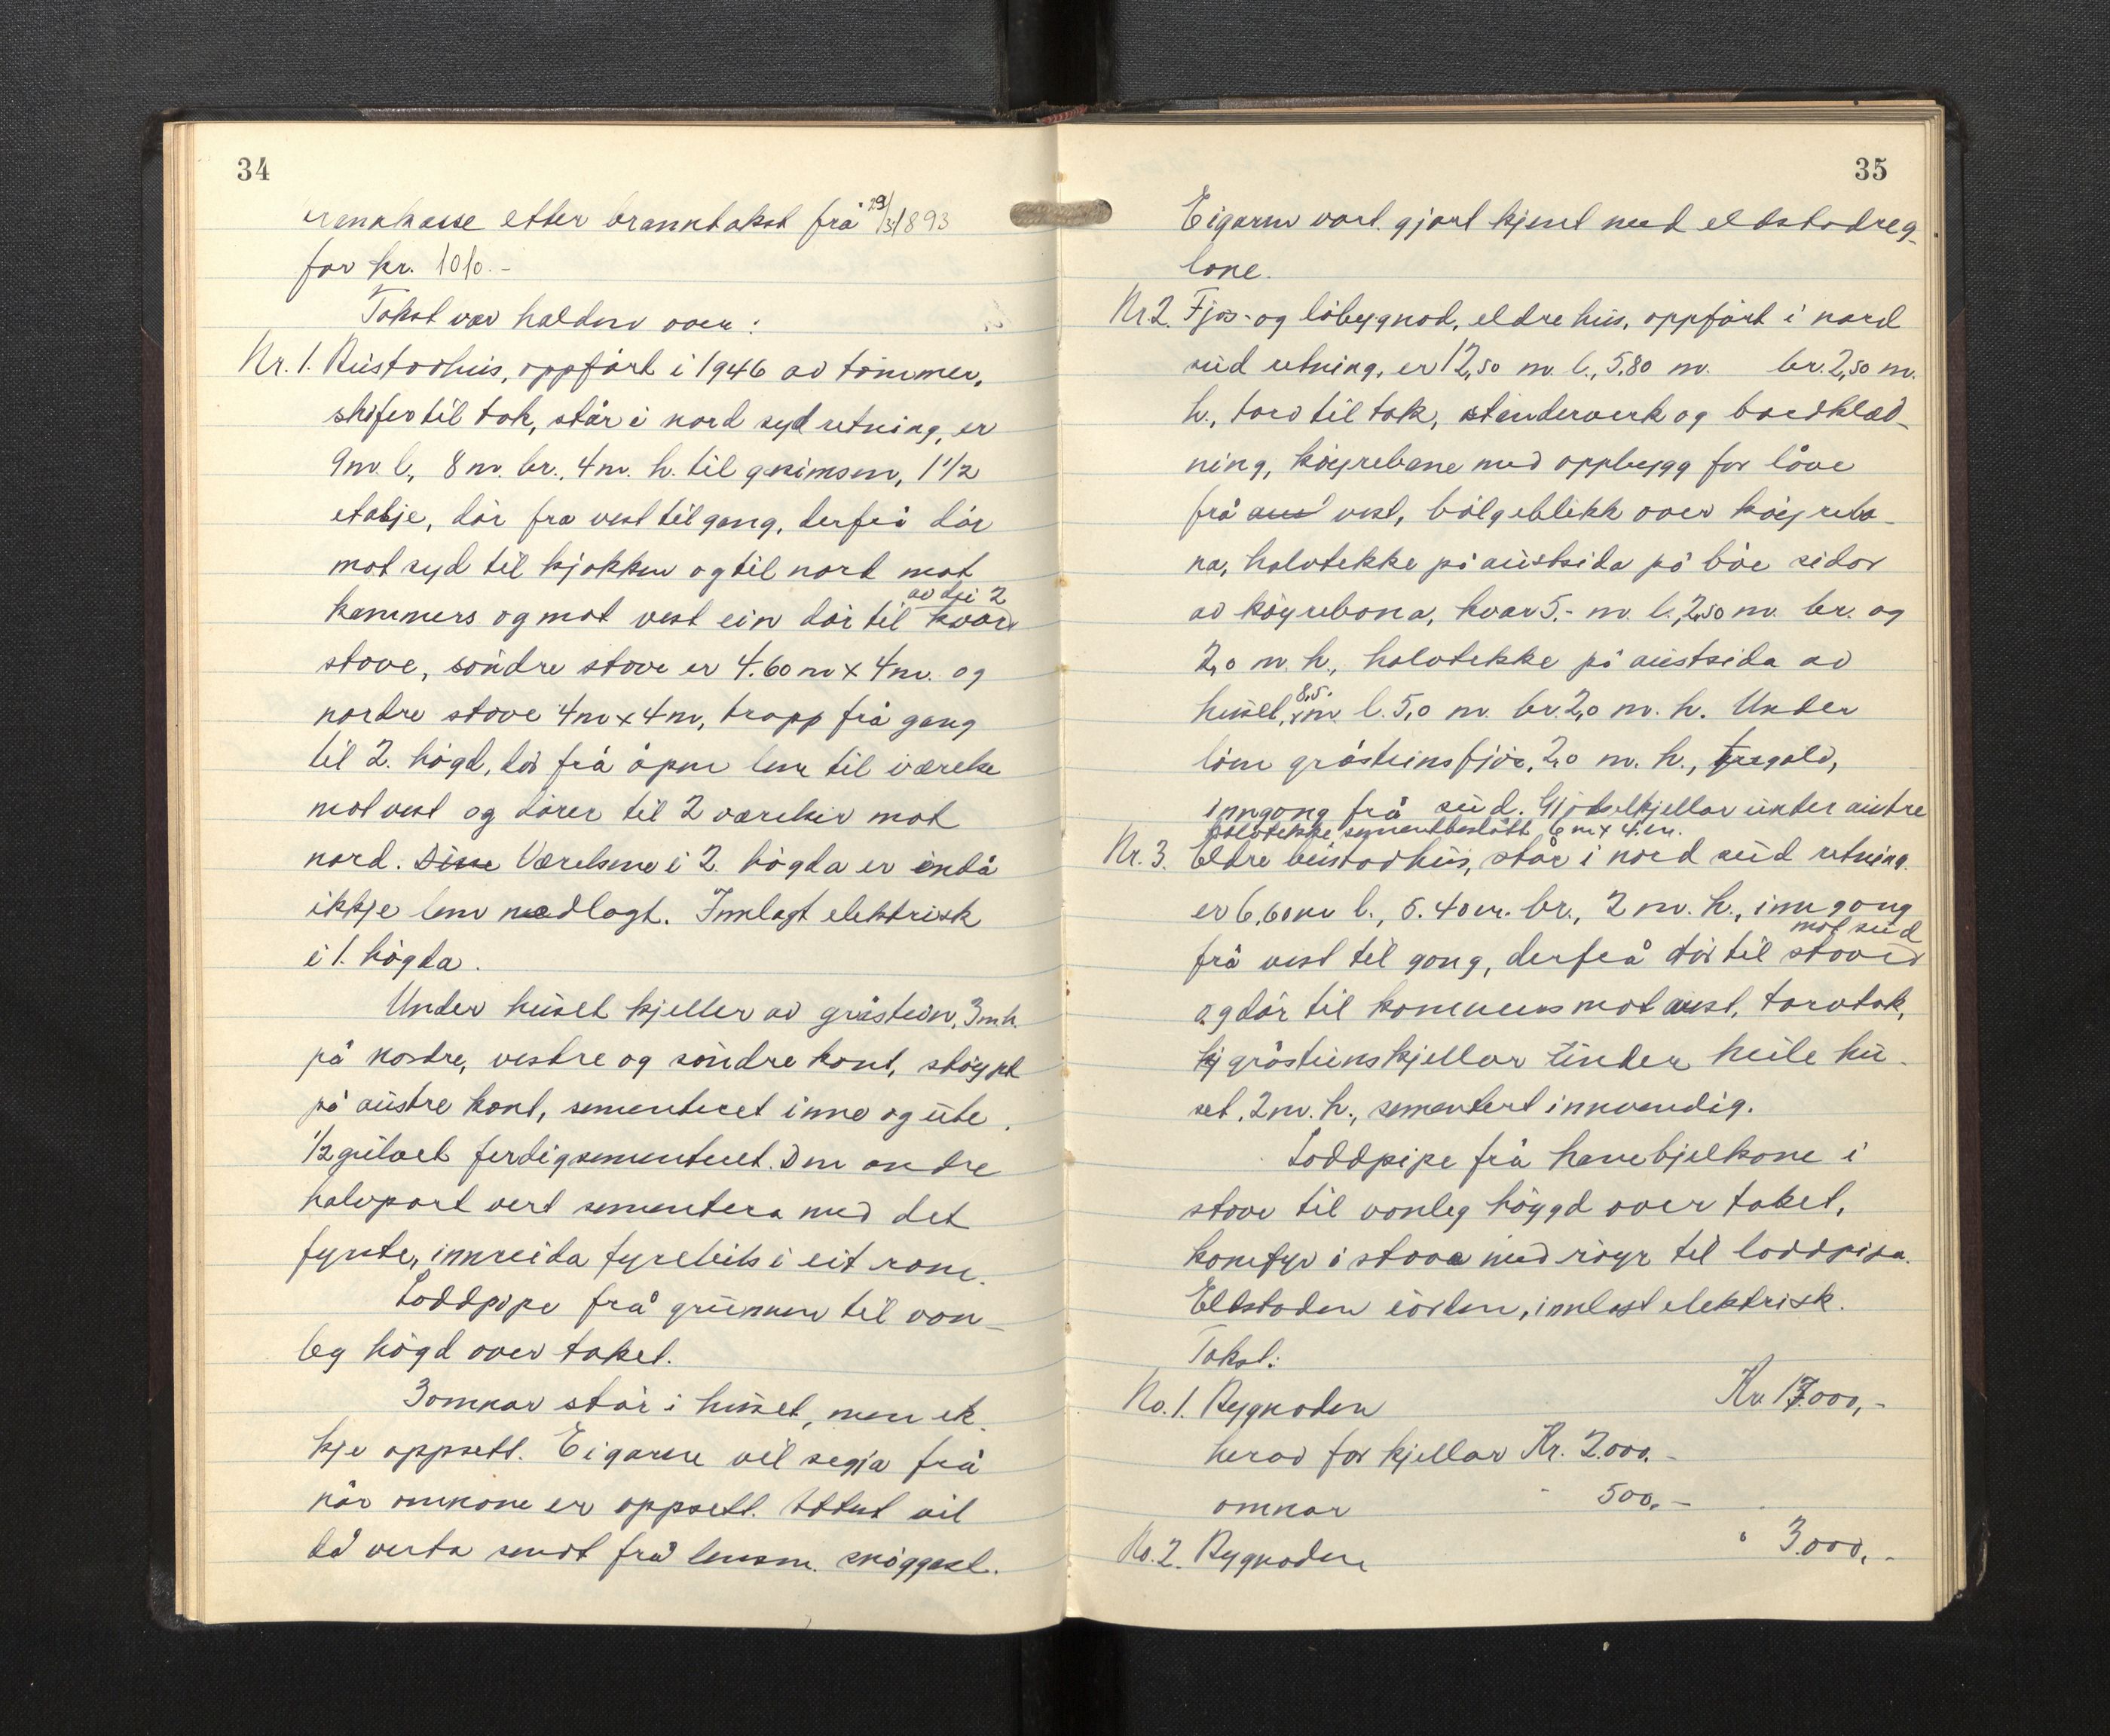 34
brannkasse etter branntakst frå 29/3 1893
for kr. 1010.-
Takst var halden over:
Nr. 1. Bustadhus, oppført i 1946 av tømmer,
skifer til tak, står i nord syd retning, er
9 m. l., 8 m. br., 4 m. h. til grimsen, 1 1/2
etasje, dør fra vest til gang, derfrå dør
mot syd til kjøkken og til nord mot
av dei 2
kammers og mot vest ein dør til kvar
stove, søndre stove er 4.60 m x 4 m. og
nordre stove 4 m x 4 m, trapp frå gang
til 2. høgd, dør frå åpen lem til værelse
mot vest og dører til 2 værelser mot
nord. Disse Værelsene i 2. høgda er endå
ikkje lem nedlagt. Innlagt elektrisk
i 1. høgda.
Under huset kjeller av gråstein, 3 m h.
på nordre, vestre og søndre kant, støypt
på austre kant, sementeret inne og ute,
1/2 gulvet ferdig sementeret. Den andre
halvpart vert sementera med det
fyrste, innreida fyrebils i eit rom.
Loddpipe frå grunnen til van-
leg høgd over taket.
3 omnar står i huset, men ik-
kje oppsett. Eigaren vil segja frå
når omnane er oppsett. Attest vil
då verta sendt frå lensm. snøggast.
35
Eigaren vart gjort kjent med eldstadreg-
lane.
Nr. 2. Fjøs- og løbygnad, eldre hus, oppført i nord
sud retning, er 12,50 m. l., 5,80 m. br. 2,50 m.
h., torv til tak, stenderverk og bordklæd-
ning, køyrebane med oppbygg for låve
frå aust vest, bølgeblikk over køyreba-
na, halvtekke på austsida på båe sidor
av køyrebana, kvar 5.- m. l., 2,50 m. br. og
2,0 m. h., halvtekke på austsida av
8,5.
huset, m l. 5,0 m. br. 2,0 m. h. Under
løen gråsteinsfjøs, 2,0 m. h., tregolv,
inngong frå sud. Gjødselkjellar under austre
halvtekke, sementbeslått 6 m x 4. m.
Nr. 3. Eldre bustadhus, står i nord sud retning.
er 6,60 m l., 5.40 m. br., 2 m. h., inngong
mot sud
frå vest til gong, derfrå dør til stova
og dør til kammers mot aust, torvtak,
kj gråsteinskjellar under heile hu-
set, 2 m. h., sementert innvendig.
Loddpipe frå hanebjelkane i
stove til vanleg høggd over taket,
komfyr i stova med røyr til loddpipa.
Eldstaden i orden, innlagt elektrisk.
Takst:
No. 1. Bygnaden Kr. 17.000,-
herav for kjellar Kr. 2.000.-
omnar - 500.-
No. 2. Bygnaden " 3.000,-